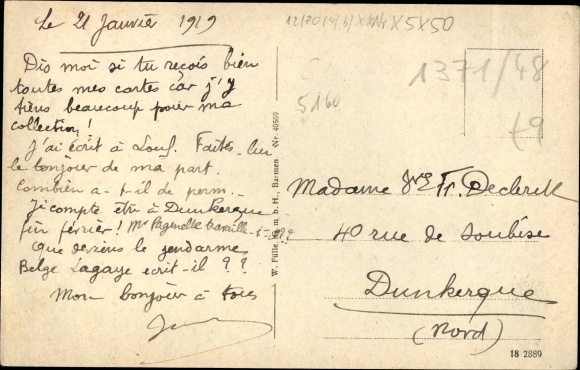 Le 21 Janvier 1919
Dis moi si tu reçois bien
toutes mes cartes car j'y
tiens beaucoup pour ma
collection!
J'ai écrit à Louf. Faites-lui
le bonjour de ma part.
Combien a-t-il de perm.
Je compte être à Dunkerque
fin février! Mr Pagnelle travaille-t-il??
Que deviens le gendarme
Belge Lagaye écrit-il??
Mon bonjour à tous
5160
1371/48
t9
Madame Vve Fr. Declerck
40 rue de Soubise
Dunkerque
(Nord)
W. Fülle, G. m. b. H., Barmen. Nr. 40569
18 2889